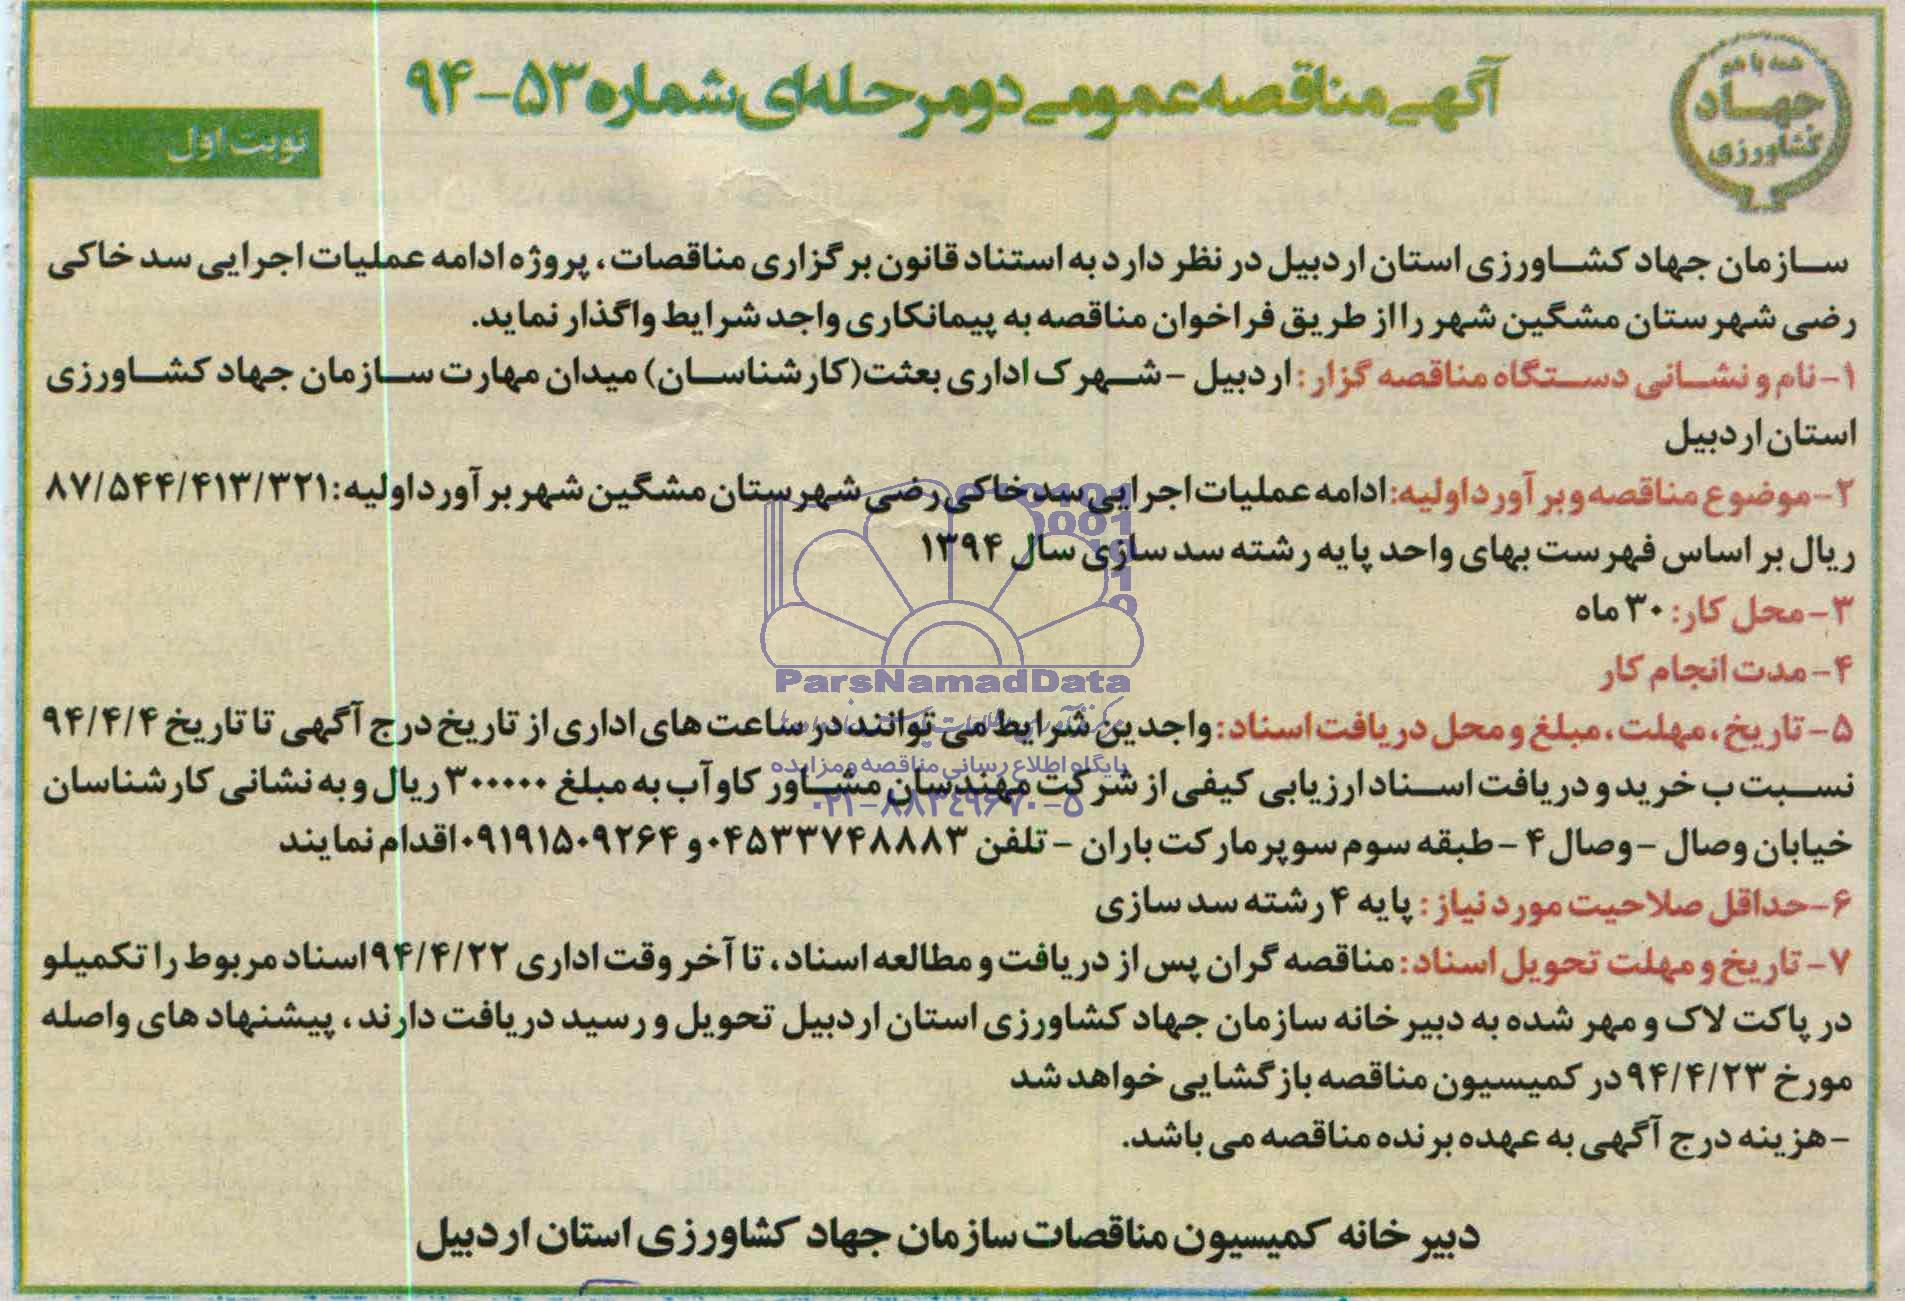 همه با هم
جهاد
کشاورزی
آگهی مناقصه عمومی دومرحله‌ای شماره ۵۳-۹۴
نوبت اول
سازمان جهاد کشاورزی استان اردبیل در نظر دارد به استناد قانون برگزاری مناقصات، پروژه ادامه عملیات اجرایی سد خاکی
رضی شهرستان مشگین شهر را از طریق فراخوان مناقصه به پیمانکاری واجد شرایط واگذار نماید.
۱- نام و نشانی دستگاه مناقصه گزار: اردبیل - شهرک اداری بعثت(کارشناسان) میدان مهارت سازمان جهاد کشاورزی
استان اردبیل
۲- موضوع مناقصه و برآورد اولیه: ادامه عملیات اجرایی سد خاکی رضی شهرستان مشگین شهر برآورد اولیه: ۸۷/۵۴۴/۴۱۳/۳۲۱
ریال بر اساس فهرست بهای واحد پایه رشته سد سازی سال ۱۳۹۴
۳- محل کار: ۳۰ ماه
۴- مدت انجام کار
۵- تاریخ، مهلت، مبلغ و محل دریافت اسناد: واجدین شرایط می توانند در ساعت های اداری از تاریخ درج آگهی تا تاریخ ۹۴/۴/۴
نسبت ب خرید و دریافت اسناد ارزیابی کیفی از شرکت مهندسان مشاور کاوآب به مبلغ ۳۰۰۰۰۰ ریال و به نشانی کارشناسان
خیابان وصال - وصال ۴ - طبقه سوم سوپرمارکت باران - تلفن ۰۴۵۳۳۷۴۸۸۸۳ و ۰۹۱۹۱۵۰۹۲۶۴ اقدام نمایند
۶- حداقل صلاحیت مورد نیاز: پایه ۴ رشته سد سازی
۷- تاریخ و مهلت تحویل اسناد: مناقصه گران پس از دریافت و مطالعه اسناد، تا آخر وقت اداری ۹۴/۴/۲۲ اسناد مربوط را تکمیلو
در پاکت لاک و مهر شده به دبیرخانه سازمان جهاد کشاورزی استان اردبیل تحویل و رسید دریافت دارند، پیشنهاد های واصله
مورخ ۹۴/۴/۲۳ در کمیسیون مناقصه بازگشایی خواهد شد
- هزینه درج آگهی به عهده برنده مناقصه می باشد.
دبیرخانه کمیسیون مناقصات سازمان جهاد کشاورزی استان اردبیل
ParsNamadData
پایگاه اطلاع رسانی مناقصه و مزایده
۰۲۱-۸۸۳۴۹۶۷۰-۵